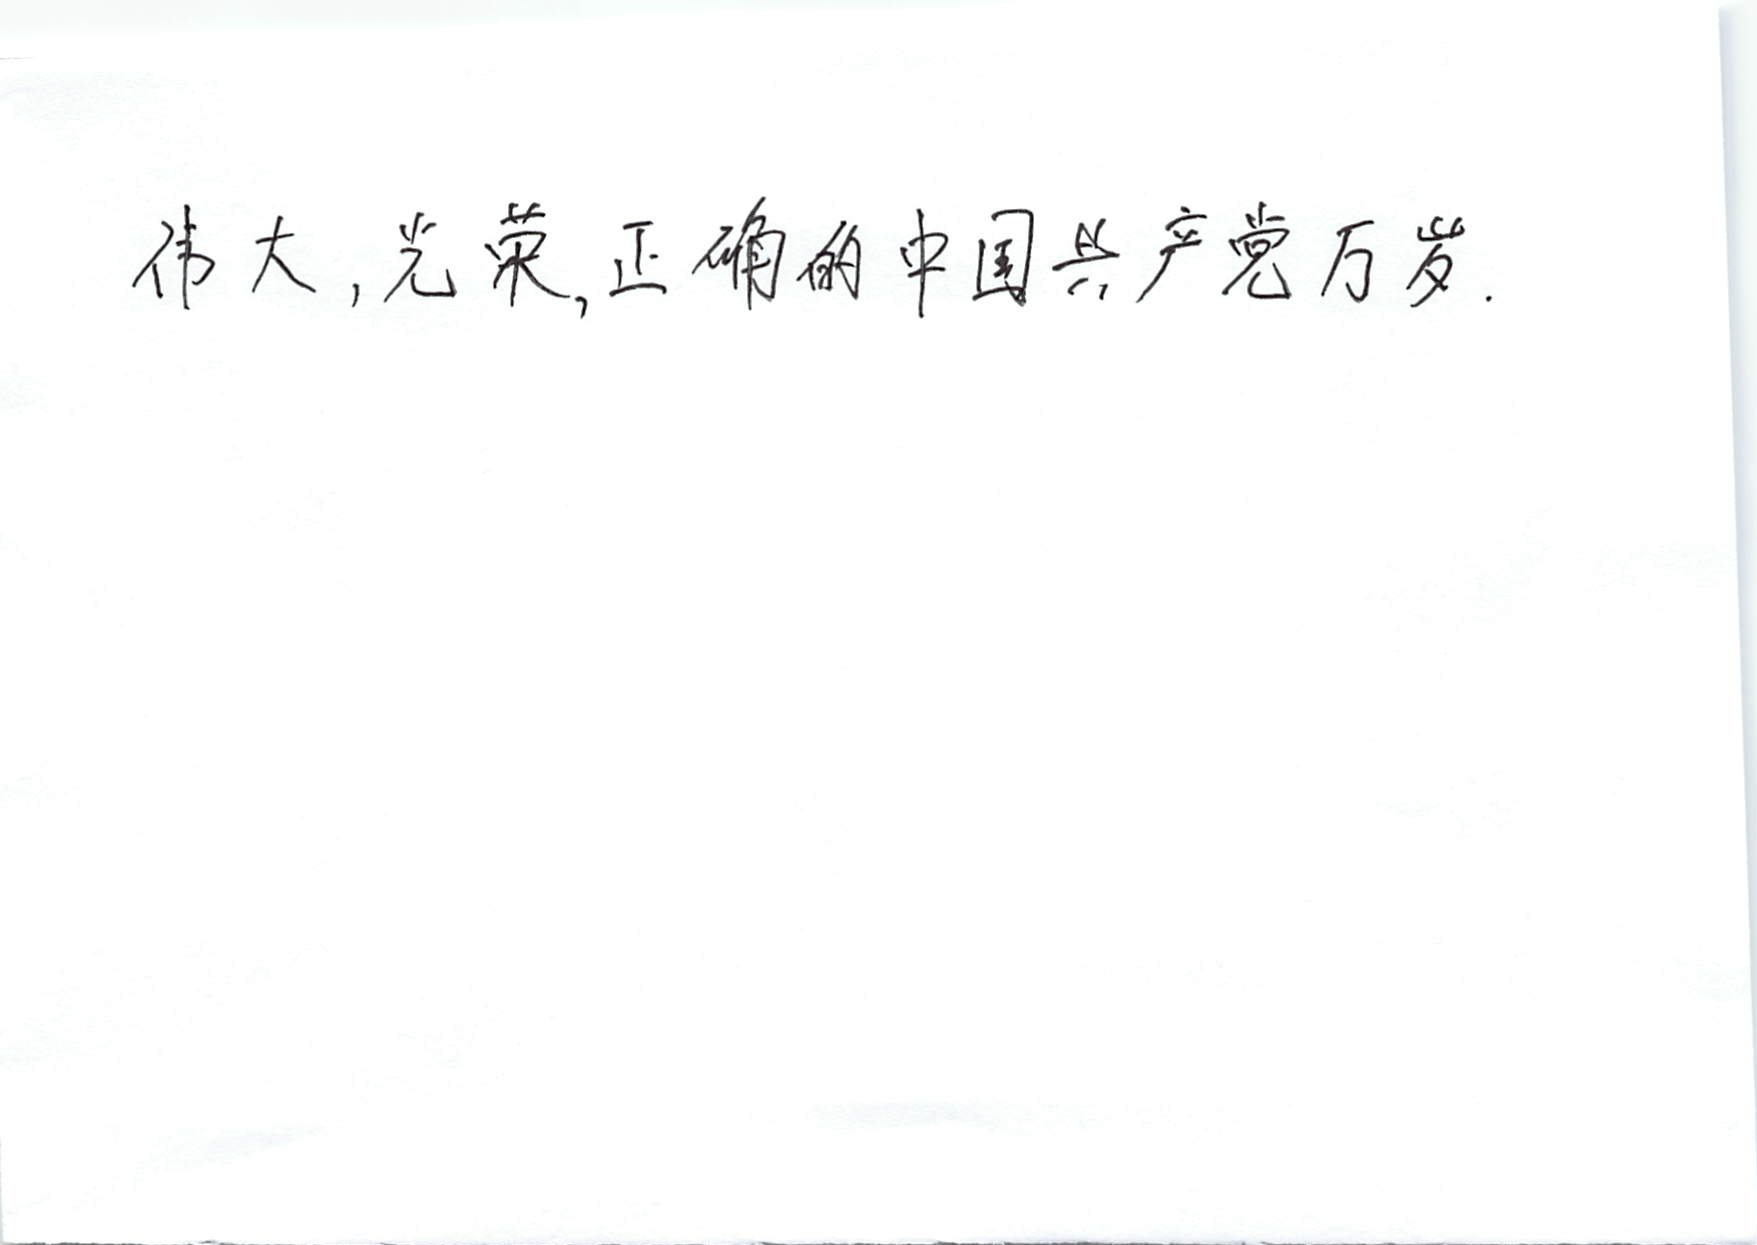 伟大,光荣,正确的中国共产党万岁.